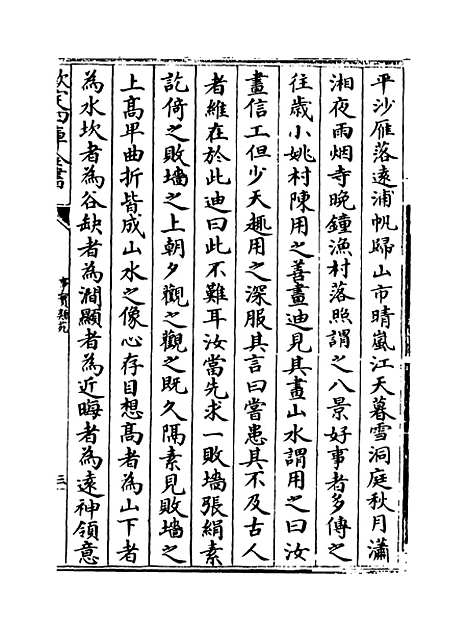 平沙雁落逺浦帆歸山市晴嵐江天暮雪洞庭秋月瀟
湘夜雨烟寺晚鐘漁村落照謂之八景好事者多傳之
往歲小姚村陳用之善畫迪見其畫山水謂用之曰汝
畫信工但少天趣用之深服其言曰嘗患其不及古人
者維在於此迪曰此不難耳汝當先求一敗墻張絹素
訖倚之敗墻之上朝夕觀之觀之既久隔素見敗墻之
上髙平曲折皆成山水之像心存目想髙者為山下者
為水坎者為谷缺者為澗顯者為近晦者為逺神領意
欽定四庫全書
事實類苑
三